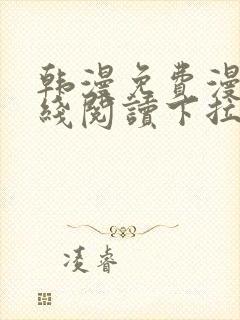 韩漫免费漫
线阅读下拉
凌睿